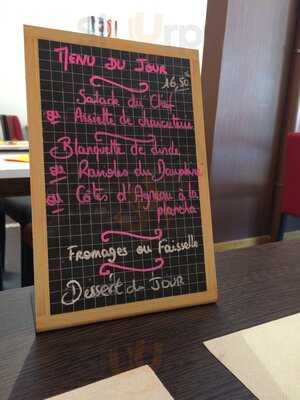 MENU DU JOUR
16,50
Salade du Chef
ou Assiette de charcuterie
Blanquette de dinde
ou Ravioles du Dauphiné
ou Côtes d'Agneau à la
plancha
FROMAGES OU FAISSELLE
DESSERT du JOUR